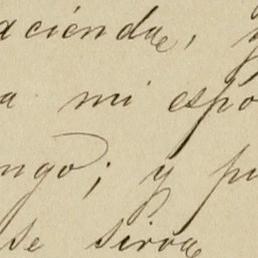 acienda, y
a mi espo
ngo; y pu
se sirva